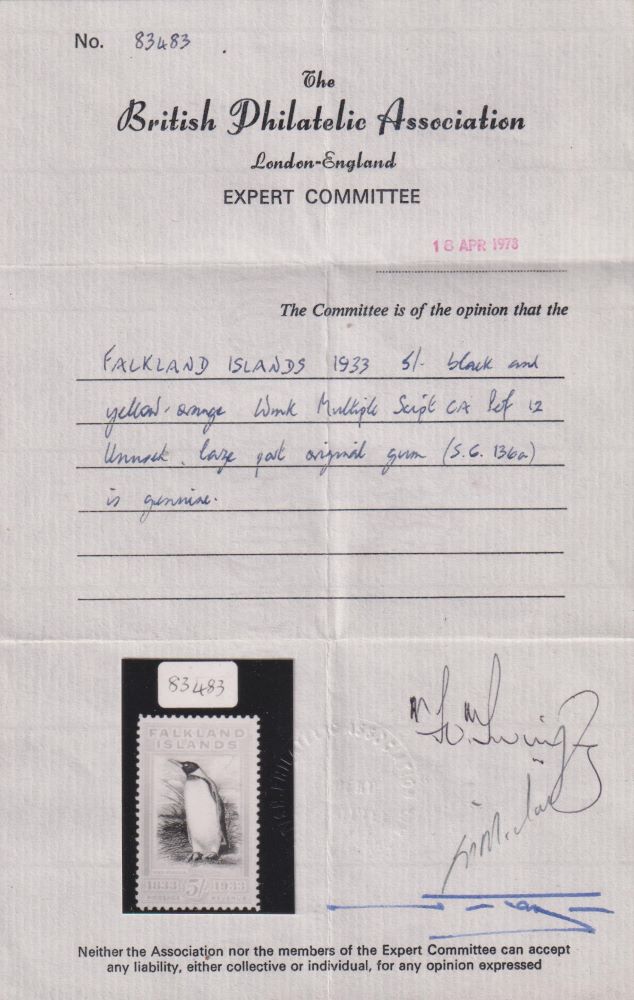 No. 83483
The
British Philatelic Association
London-England
EXPERT COMMITTEE
18 APR 1978
The Committee is of the opinion that the
FALKLAND ISLANDS 1933 5/- black and
yellow-orange Wmk Multiple Script CA Perf 12
Unused, large part original gum (S.G. 136a)
is genuine.
83483
FALKLAND
ISLANDS
1833 5/- 1933
POSTAGE REVENUE
Neither the Association nor the members of the Expert Committee can accept
any liability, either collective or individual, for any opinion expressed